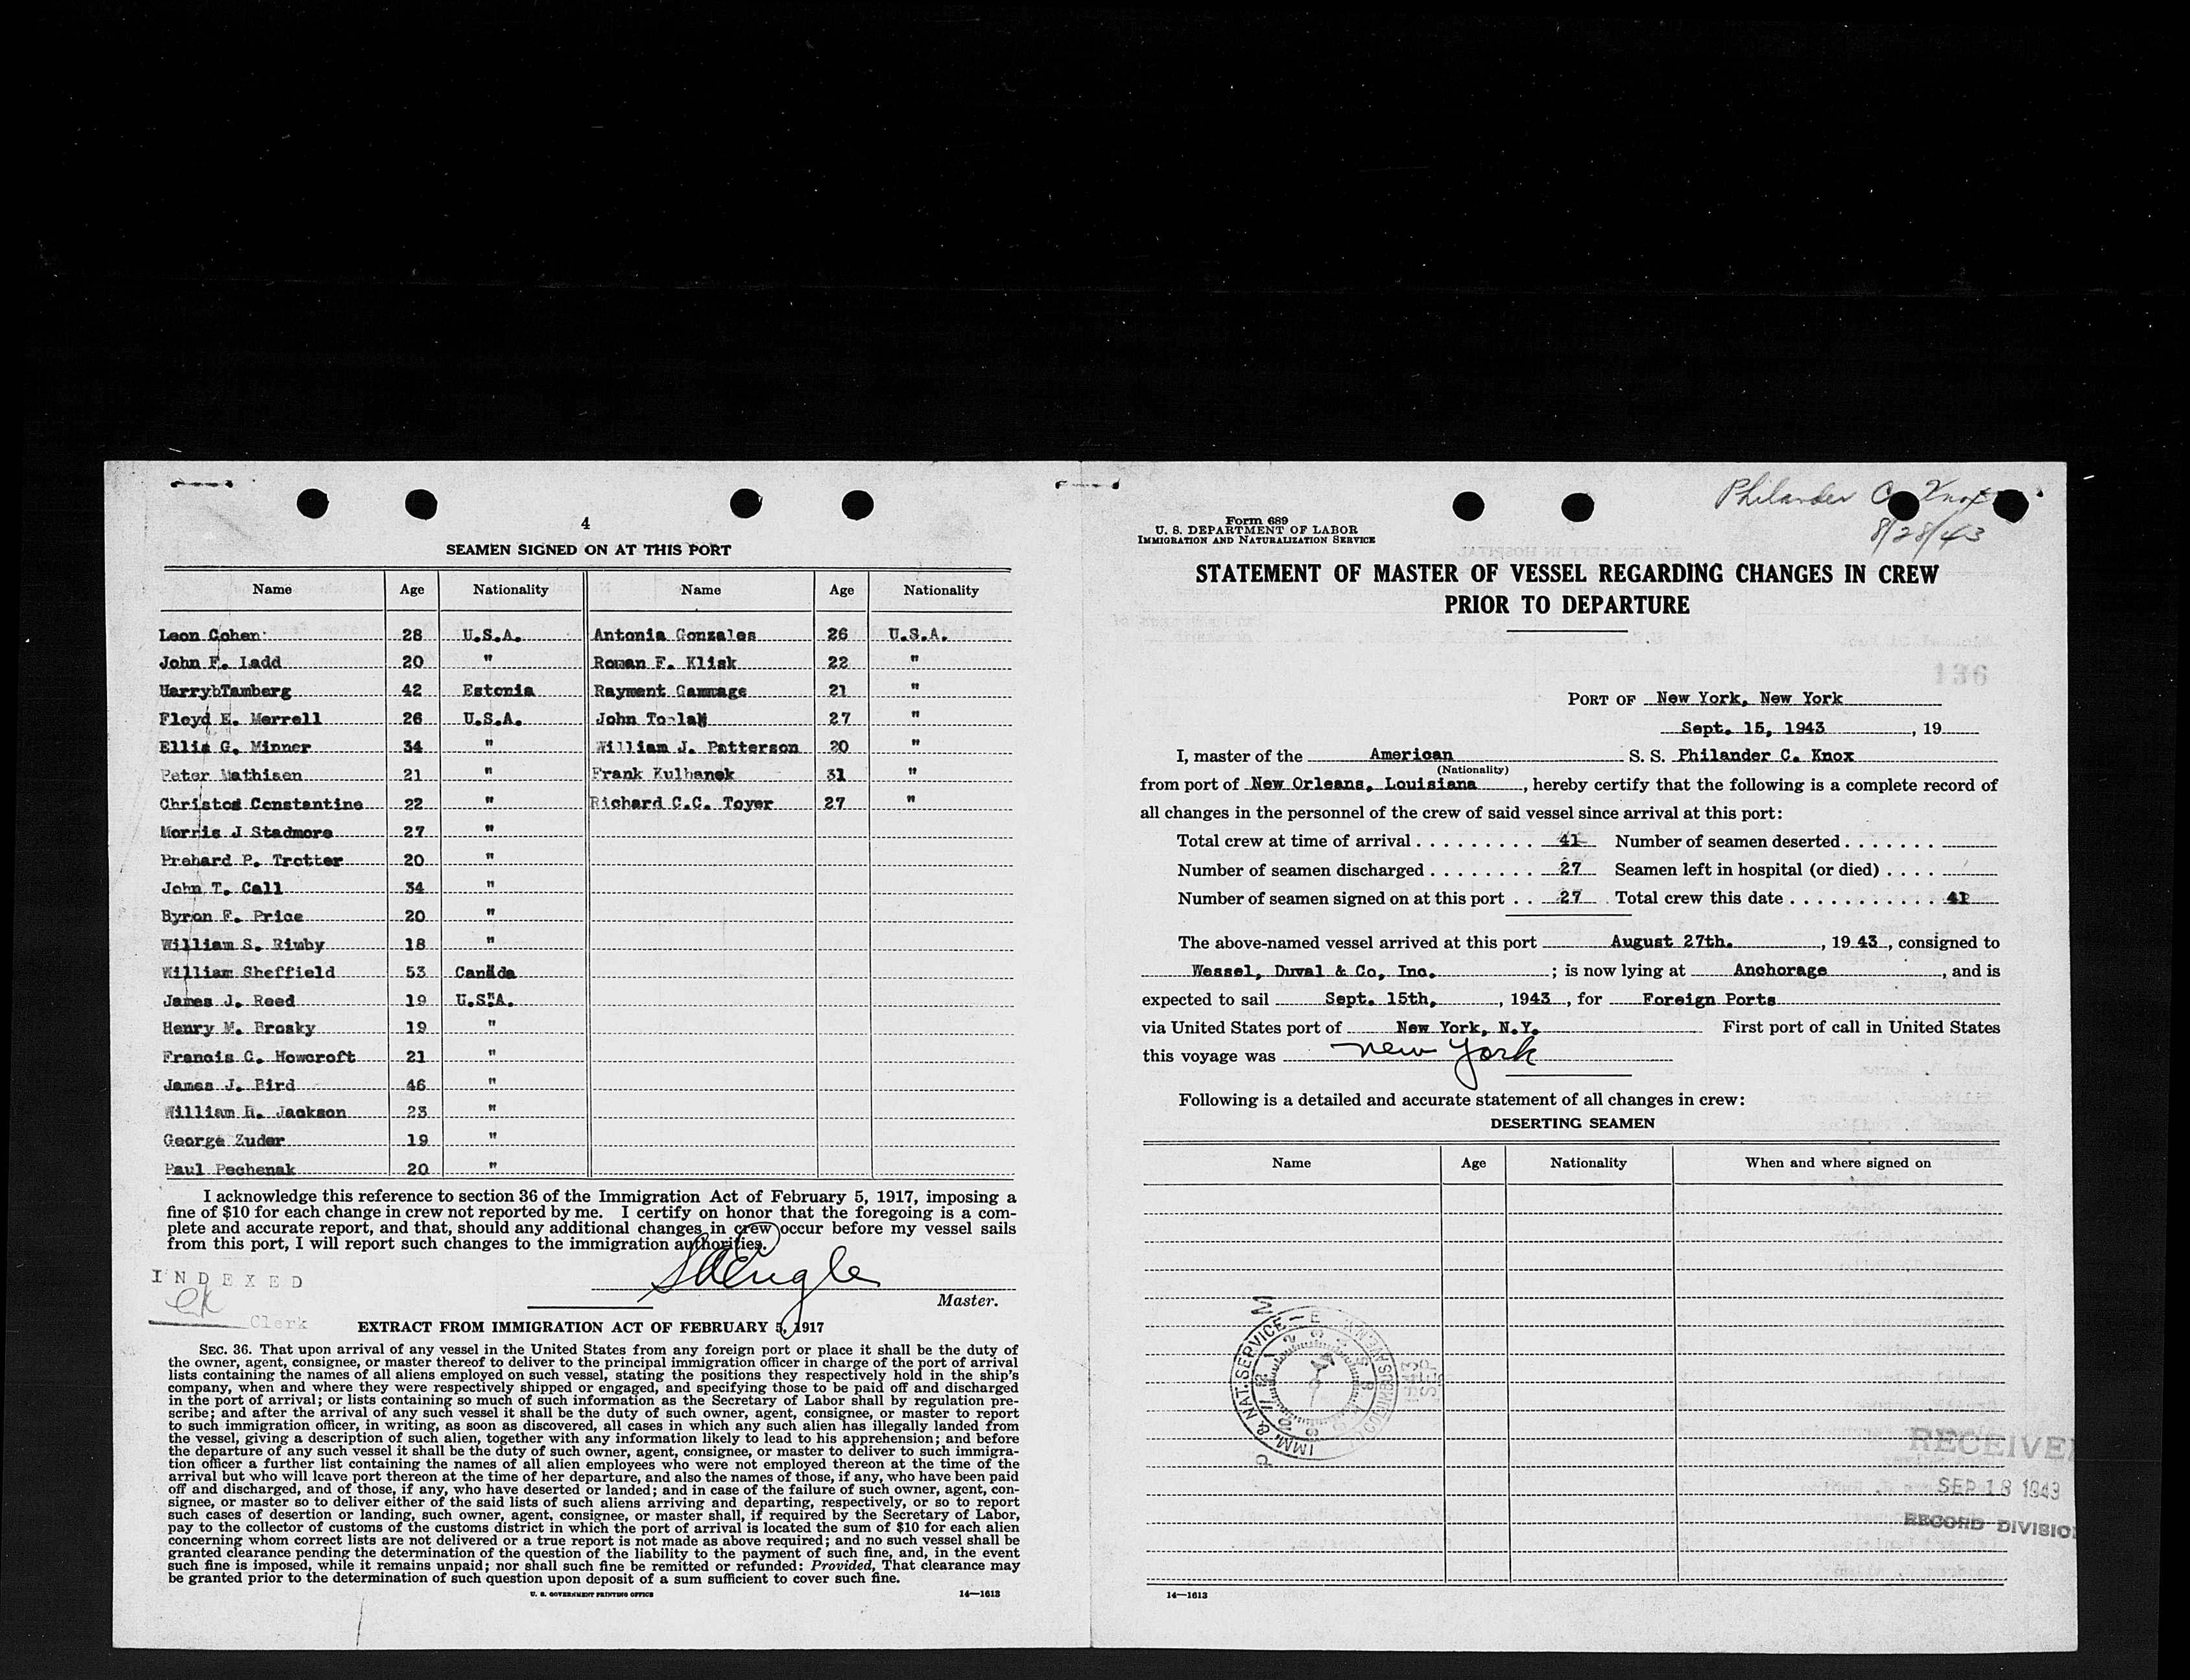 4
SEAMEN SIGNED ON AT THIS PORT
Name Age Nationality Name Age Nationality
Leon Cohen 28 U.S.A. Antonia Gonzales 26 U.S.A.
John F. Ladd 20 " Roman F. Klisk 22 "
HarrybTamberg 42 Estonia Rayment Gammage 21 "
Floyd E. Merrell 26 U.S.A. John To-lan 27 "
Ellis G. Minner 34 " William J. Patterson 20 "
Peter Mathisen 21 " Frank Kulhanek 31 "
Christos Constantine 22 " Richard C.C. Toyer 27 "
Morris J Stadmore 27 "
Prehard P. Trotter 20 "
John T. Call 34 "
Byron F. Price 20 "
William S. Rimby 18 "
William Sheffield 53 Canada
James J. Reed 19 U.S.A.
Henry M. Brosky 19 "
Francis C. Howcroft 21 "
James J. Bird 46 "
William H. Jackson 23 "
George Zuder 19 "
Paul Pechenak 20 "
I acknowledge this reference to section 36 of the Immigration Act of February 5, 1917, imposing a
fine of $10 for each change in crew not reported by me. I certify on honor that the foregoing is a com-
plete and accurate report, and that, should any additional changes in crew occur before my vessel sails
from this port, I will report such changes to the immigration authorities.
INDEXED
Engle
Master.
Clerk
EXTRACT FROM IMMIGRATION ACT OF FEBRUARY 5, 1917
SEC. 36. That upon arrival of any vessel in the United States from any foreign port or place it shall be the duty of
the owner, agent, consignee, or master thereof to deliver to the principal immigration officer in charge of the port of arrival
lists containing the names of all aliens employed on such vessel, stating the positions they respectively hold in the ship's
company, when and where they were respectively shipped or engaged, and specifying those to be paid off and discharged
in the port of arrival; or lists containing so much of such information as the Secretary of Labor shall by regulation pre-
scribe; and after the arrival of any such vessel it shall be the duty of such owner, agent, consignee, or master to report
to such immigration officer, in writing, as soon as discovered, all cases in which any such alien has illegally landed from
the vessel, giving a description of such alien, together with any information likely to lead to his apprehension; and before
the departure of any such vessel it shall be the duty of such owner, agent, consignee, or master to deliver to such immigra-
tion officer a further list containing the names of all alien employees who were not employed thereon at the time of the
arrival but who will leave port thereon at the time of her departure, and also the names of those, if any, who have been paid
off and discharged, and of those, if any, who have deserted or landed; and in case of the failure of such owner, agent, con-
signee, or master so to deliver either of the said lists of such aliens arriving and departing, respectively, or so to report
such cases of desertion or landing, such owner, agent, consignee, or master shall, if required by the Secretary of Labor,
pay to the collector of customs of the customs district in which the port of arrival is located the sum of $10 for each alien
concerning whom correct lists are not delivered or a true report is not made as above required; and no such vessel shall be
granted clearance pending the determination of the question of the liability to the payment of such fine, and, in the event
such fine is imposed, while it remains unpaid; nor shall such fine be remitted or refunded: Provided, That clearance may
be granted prior to the determination of such question upon deposit of a sum sufficient to cover such fine.
U. S. GOVERNMENT PRINTING OFFICE 14—1613
Philander C Knox
8/28/43
Form 689
U. S. DEPARTMENT OF LABOR
IMMIGRATION AND NATURALIZATION SERVICE
STATEMENT OF MASTER OF VESSEL REGARDING CHANGES IN CREW
PRIOR TO DEPARTURE
136
PORT OF New York, New York
Sept. 15, 1943, 19
I, master of the American S. S. Philander C. Knox
(Nationality)
from port of New Orleans, Louisiana, hereby certify that the following is a complete record of
all changes in the personnel of the crew of said vessel since arrival at this port:
Total crew at time of arrival . . . . . . . . . 41 Number of seamen deserted . . . . . . .
Number of seamen discharged . . . . . . . . 27 Seamen left in hospital (or died) . . . .
Number of seamen signed on at this port . . 27 Total crew this date . . . . . . . . . . . . 41
The above-named vessel arrived at this port August 27th., 1943, consigned to
Wessel, Duval & Co, Inc. ; is now lying at Anchorage, and is
expected to sail Sept. 15th, , 1943, for Foreign Ports
via United States port of New York, N.Y. First port of call in United States
this voyage was New York
Following is a detailed and accurate statement of all changes in crew:
DESERTING SEAMEN
Name Age Nationality When and where signed on
IMM. & NAT. SERVICE
1943
SEP
RECEIVE
SEP 18 1943
RECORD DIVISIO
14—1613